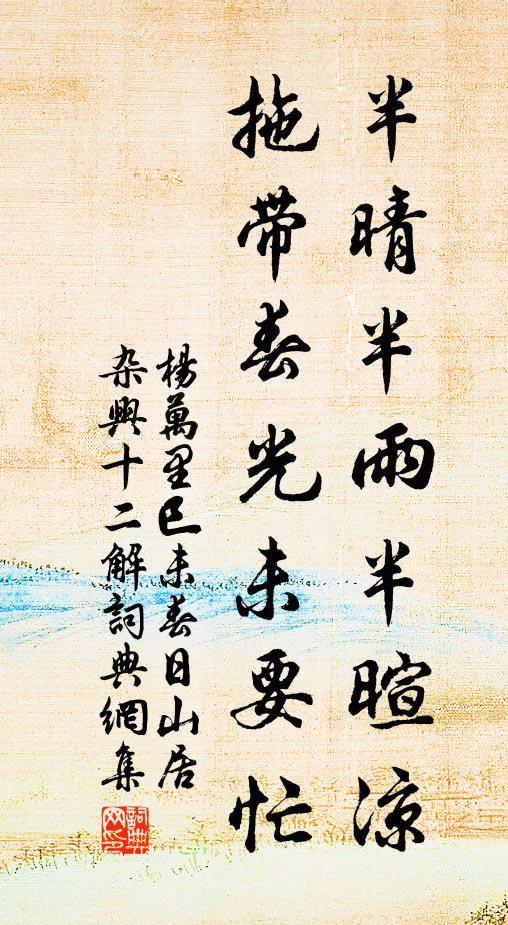 半晴半雨半暄凉
拖带春光未要忙
楊萬里巳未春日山居
杂興十二解詞典網集
詞典网印